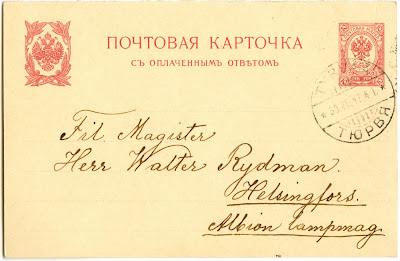 ПОЧТОВАЯ КАРТОЧКА
СЪ ОПЛАЧЕННЫМЪ ОТВѢТОМЪ.
ТЮРВЯ
Fil. Magister
Herr Walter Rydman.
Helsingfors.
Albion lampmag.